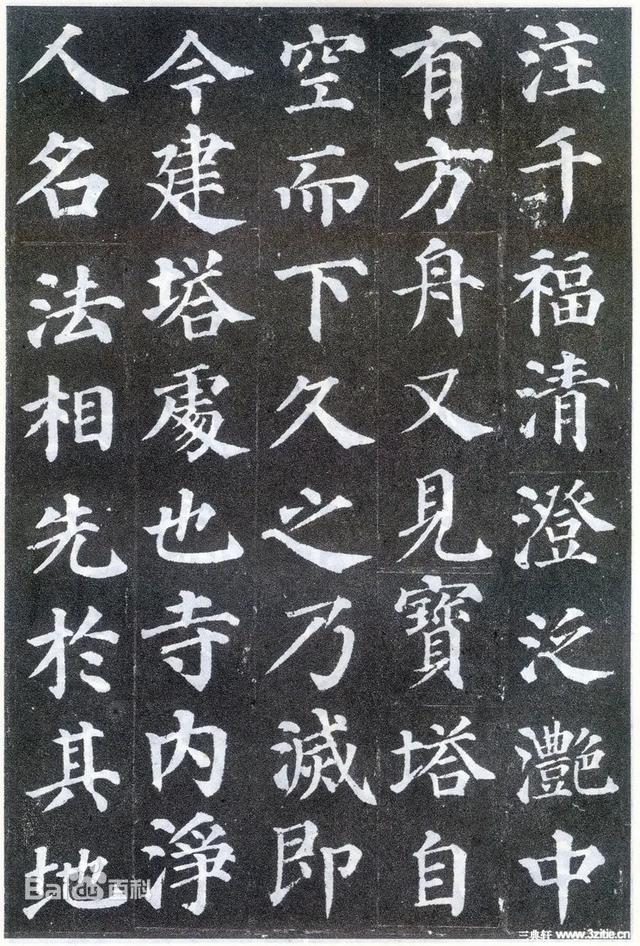 注千福清澄泛灩中
有方舟又見寶塔自
空而下久之乃滅即
今建塔處也寺内淨
人名法相先於其地
Baidu百科
三典轩 www.3zitie.cn